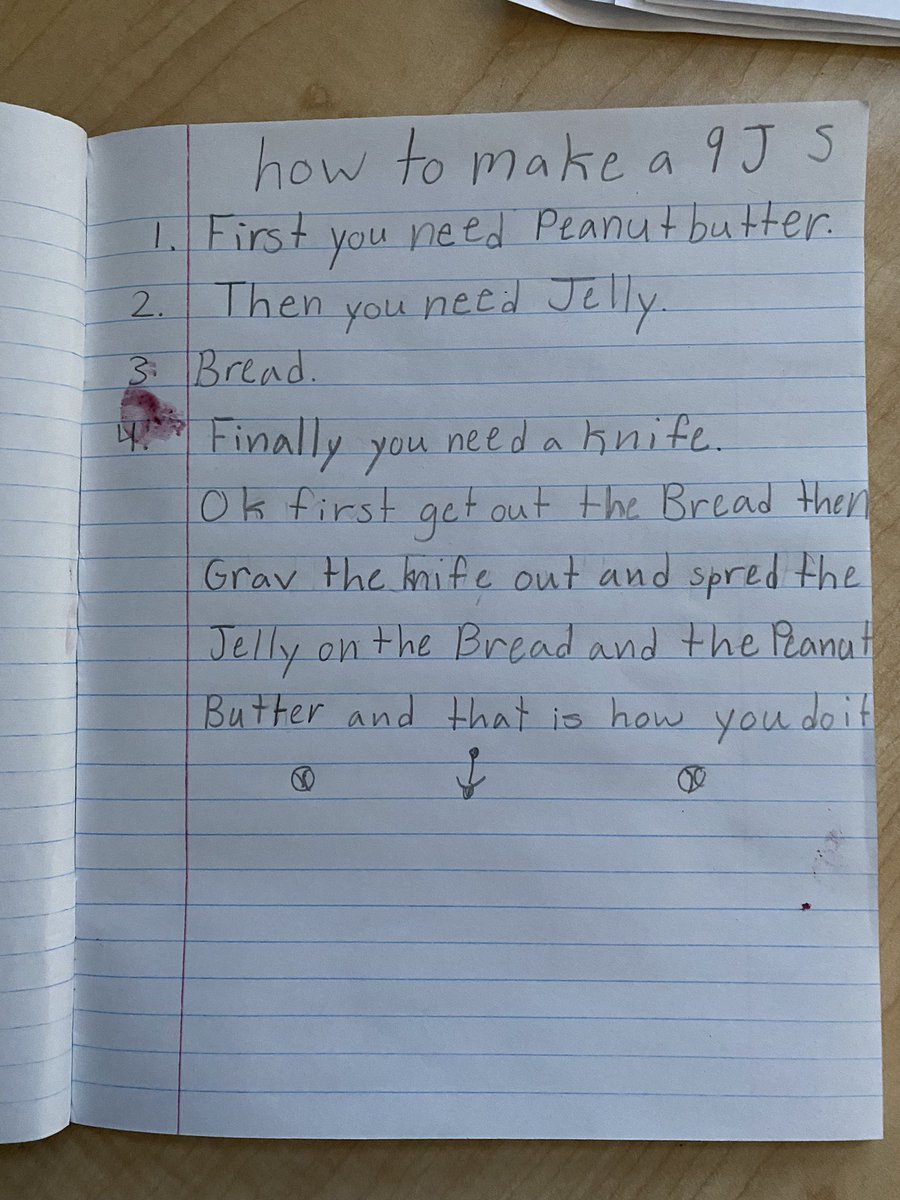 how to make a 9 J S
1. First you need Peanutbutter.
2. Then you need Jelly.
3. Bread.
4. Finally you need a knife.
Ok first get out the Bread then
Grav the knife out and spred the
Jelly on the Bread and the Peanut
Butter and that is how you do it